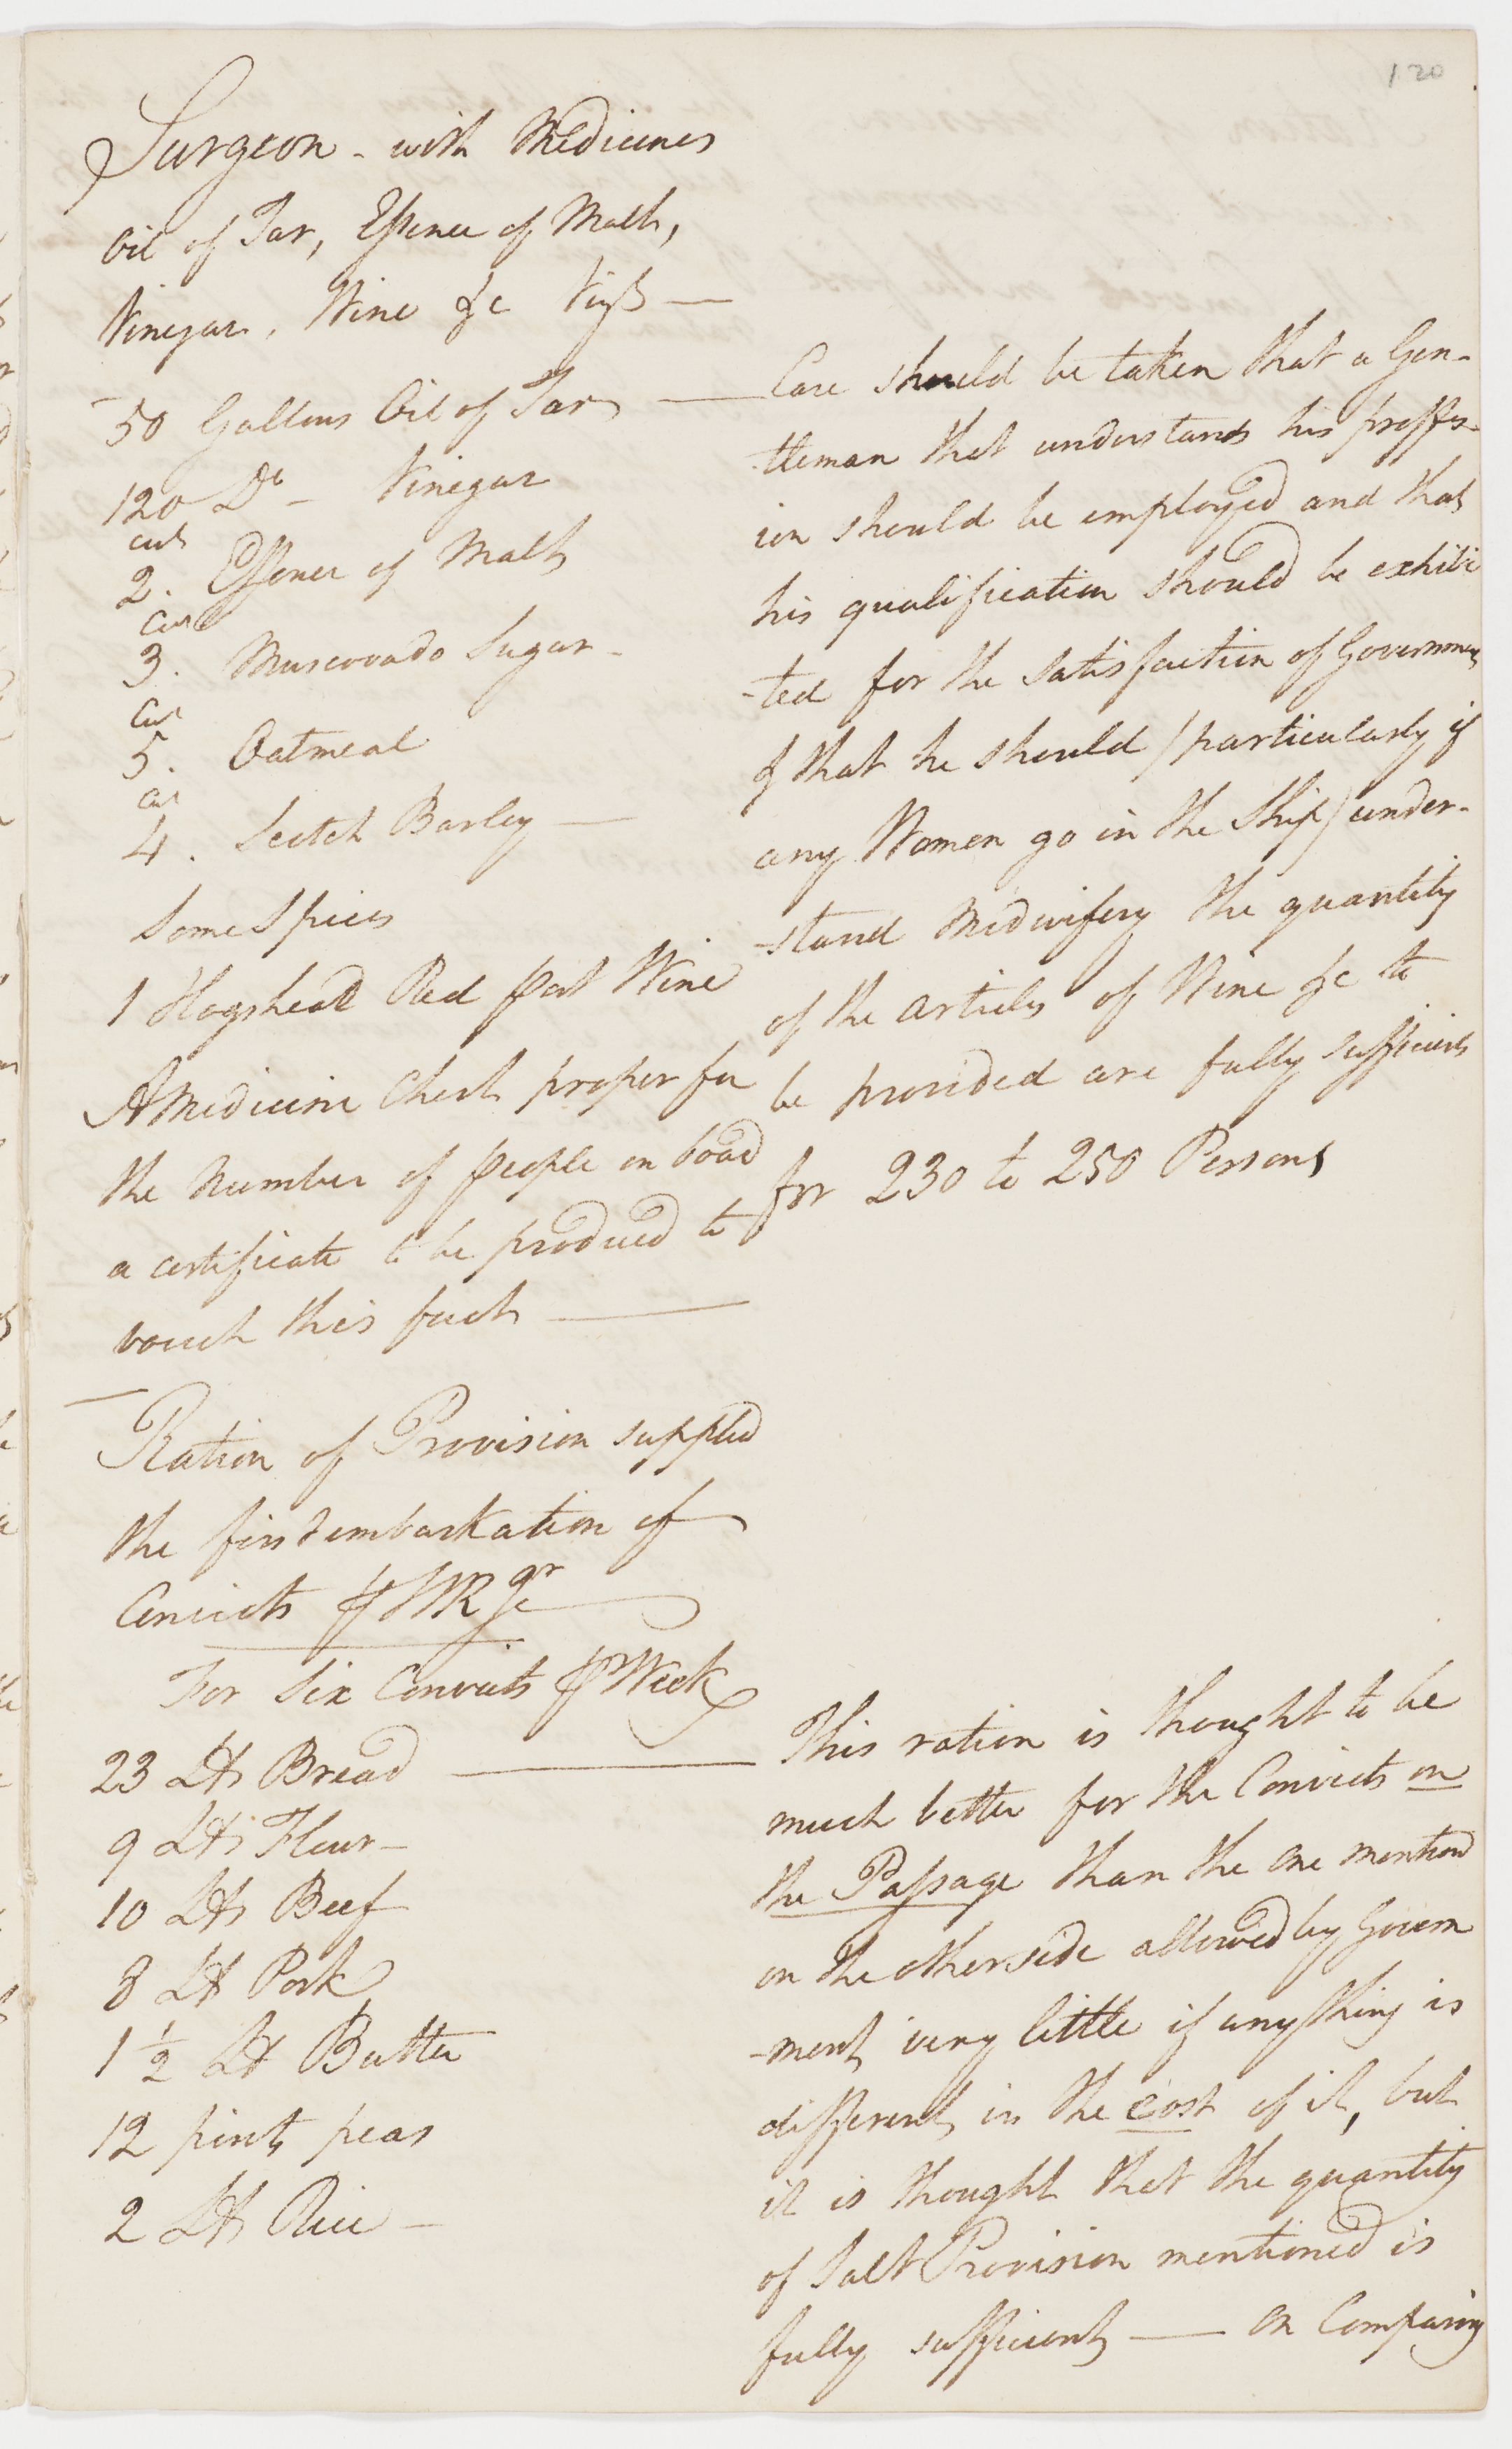 120
Surgeon - with Medicines
Oil of Tar, Essence of Malt,
Vinegar, Wine &c Vizt —
50 Gallons Oil of Tar —
120 Do - Vinegar
cwt
2. Essence of Malt
Cwt
3. Muscovado Sugar -
Cwt
5. Oatmeal
Cwt
4. Scotch Barley —
Some Spices
1 Hogshead Red Port Wine
A Medicine Chest proper for
the Number of people on board
a certificate to be produced to
vouch this fact —
Ration of Provision supplied
the first embarkation of
Convicts
For Six Convicts ⅌ Week
23 lbs Bread —
9 lbs Flour -
10 lbs Beef
8 lb Pork
1 ½ lb Butter
12 pints peas
2 lbs Rice -
Care should be taken that a Gen-
-tleman that understands his proffes-
ion should be employed and that
his qualification should be exhibi
-ted for the satisfaction of Government
& that he should (particularly if
any Women go in the Ship) under-
-stand Midwifery the quantity
of the articles of Wine &c to
be provided are fully sufficient
for 230 to 250 Persons
This ration is thought to be
much better for the Convicts on
the Passage than the one mentiond
on the other side allowed by Govern
-ment very little if any thing is
different in the cost of it, but
it is thought that the quantity
of Salt Provision mentioned is
fully sufficient — On Comparing